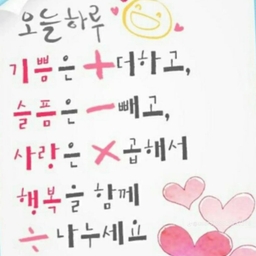 오늘하루
기쁨은 + 더하고,
슬픔은 - 빼고,
사랑은 × 곱해서
행복을 함께
÷ 나누세요